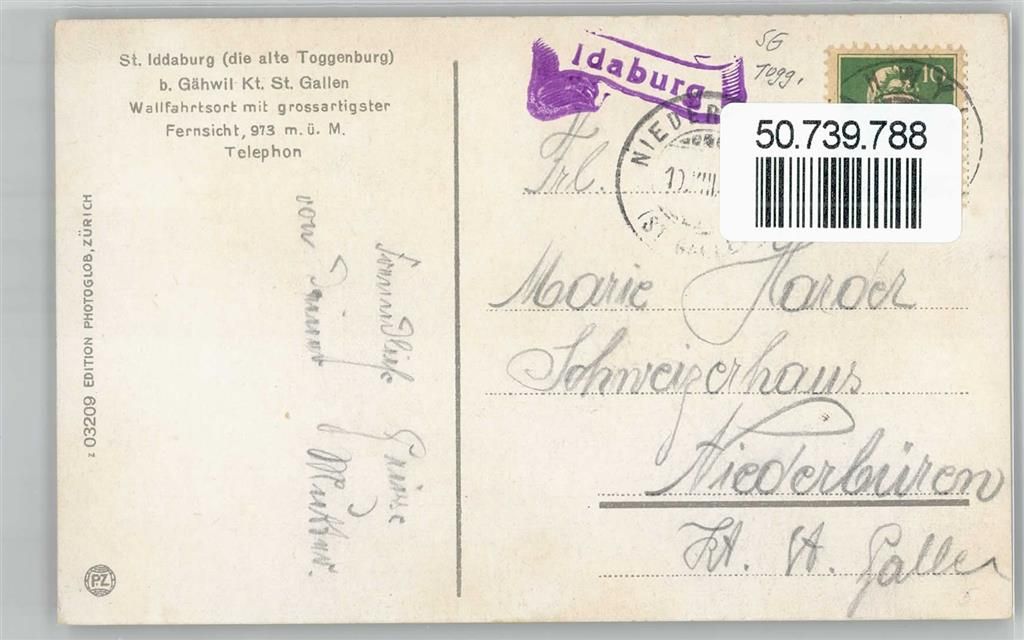 St. Iddaburg (die alte Toggenburg)
b. Gähwil Kt. St. Gallen
Wallfahrtsort mit grossartigster
Fernsicht, 973 m. ü. M.
Telephon
Idaburg
SG
Togg.
10
50.739.788
NIEDER
(ST. GALLE
Frl.
Marie Harder
Schweizerhaus
Niederbüren
Kt. St. Gallen
Freundliche Grüsse
von Deiner Mutter.
Z 03209 EDITION PHOTOGLOB, ZÜRICH
P.Z